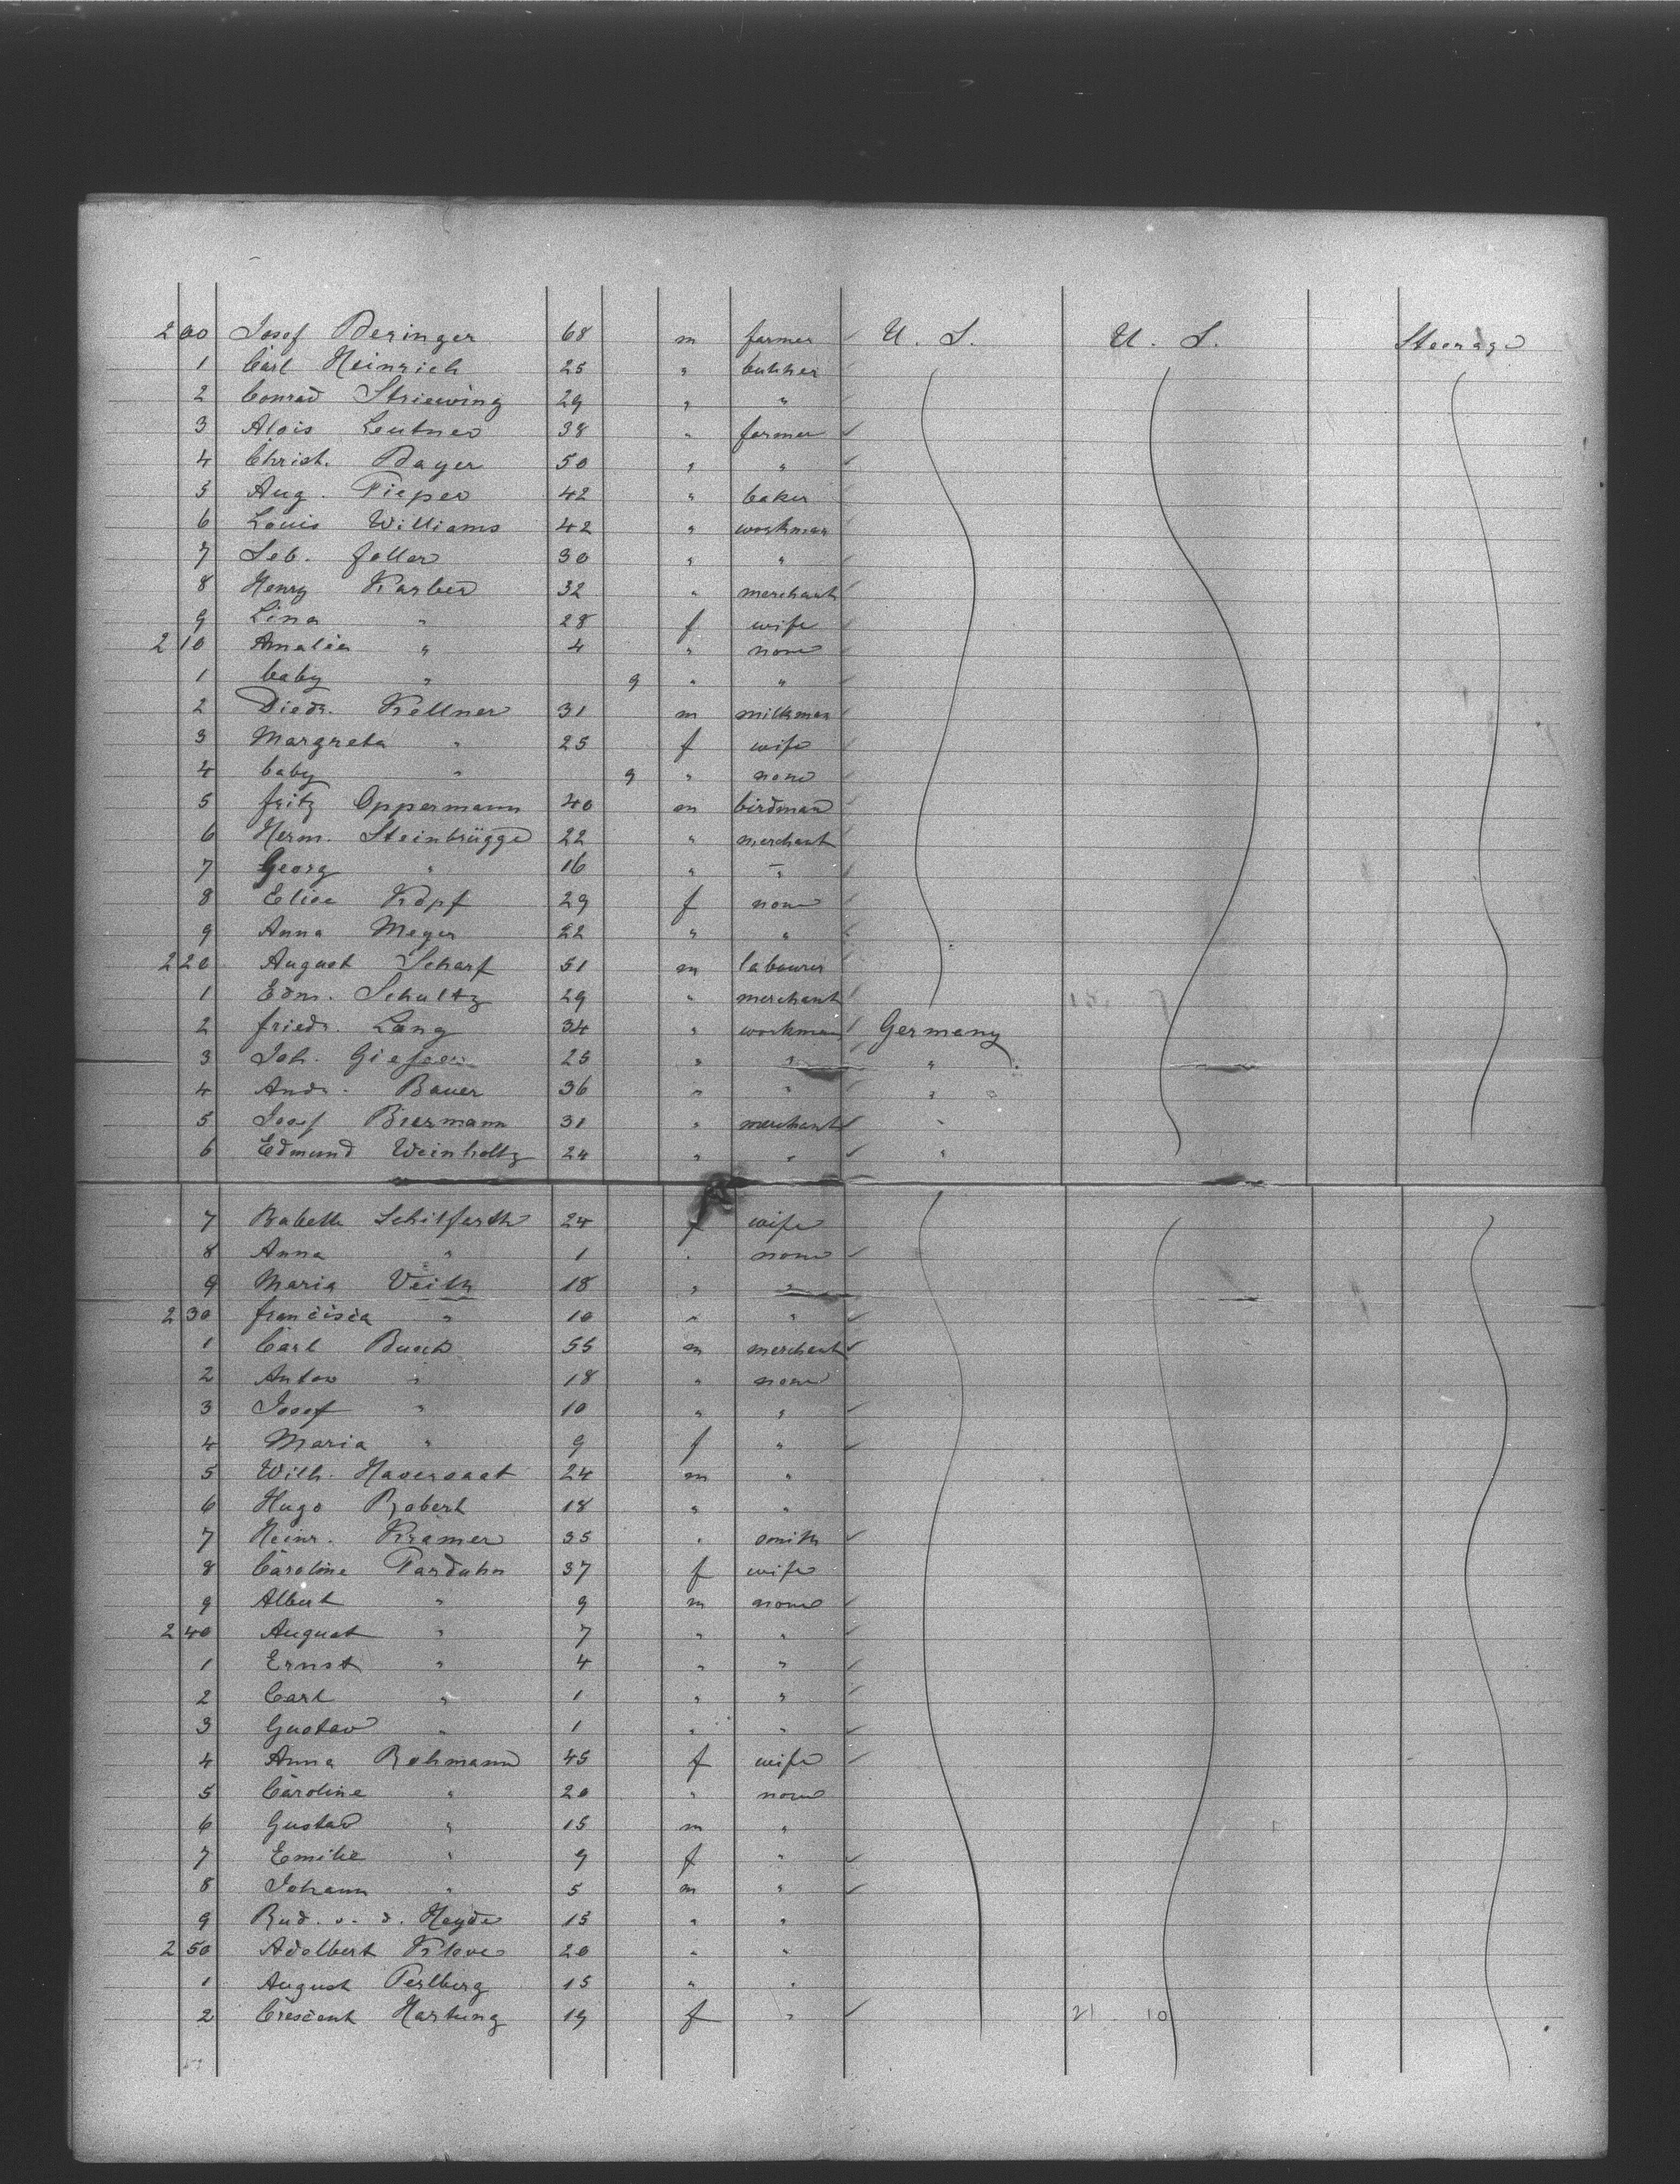 200 Josef Beringer 68 m farmer U. S. U. S. Steerage
1 Carl Heinrich 25 " butcher
2 Conrad Striewing 29 " "
3 Alois Leutner 38 " farmer
4 Christ. Bayer 50 " "
5 Aug. Pieper 42 " baker
6 Louis Williams 42 " workman
7 Seb. Faller 30 " "
8 Henry Karber 32 " merchant
9 Lina " 28 f wife
210 Amalia " 4 " none
1 baby " 9 " "
2 Diedr. Kellner 31 m milkman
3 Margreta " 25 f wife
4 baby " 9 " none
5 Fritz Oppermann 40 m birdman
6 Herm. Steinbrügge 22 " merchant
7 Georg " 16 " "
8 Elise Kopf 29 f none
9 Anna Meyer 22 " "
220 August Scharf 51 m labourer
1 Edm. Schultz 29 " merchant
2 Friedr. Lang 34 " workman Germany
3 Joh. 25 " " "
4 Andr. Bauer 36 " " "
5 Josef Biermann 31 " merchant "
6 Edmund Weinholtz 24 " " "
7 Babette Schilfarth 24 f wife
8 Anna " 1 " none
9 Maria Veith 18 " "
230 Francisca " 10 " "
1 Carl Busch 55 m merchant
2 Anton " 18 " none
3 Josef " 10 " "
4 Maria " 9 f "
5 Wilh. Haversaat 24 m "
6 Hugo Robert 18 " "
7 Heinr. Kramer 35 " smith
8 Caroline Parduhn 37 f wife
9 Albert " 9 m none
240 August " 7 " "
1 Ernst " 4 " "
2 Carl " 1 " "
3 Gustav " 1 " "
4 Anna Rohmann 45 f wife
5 Caroline " 20 " none
6 Gustav " 15 m "
7 Emilie " 9 f "
8 Johann " 5 m "
9 Rud. v. d. Heyde 15 " "
250 Adalbert Klove 20 " "
1 August Perlberg 15 " "
2 Crescent Hartung 19 f " 21 10